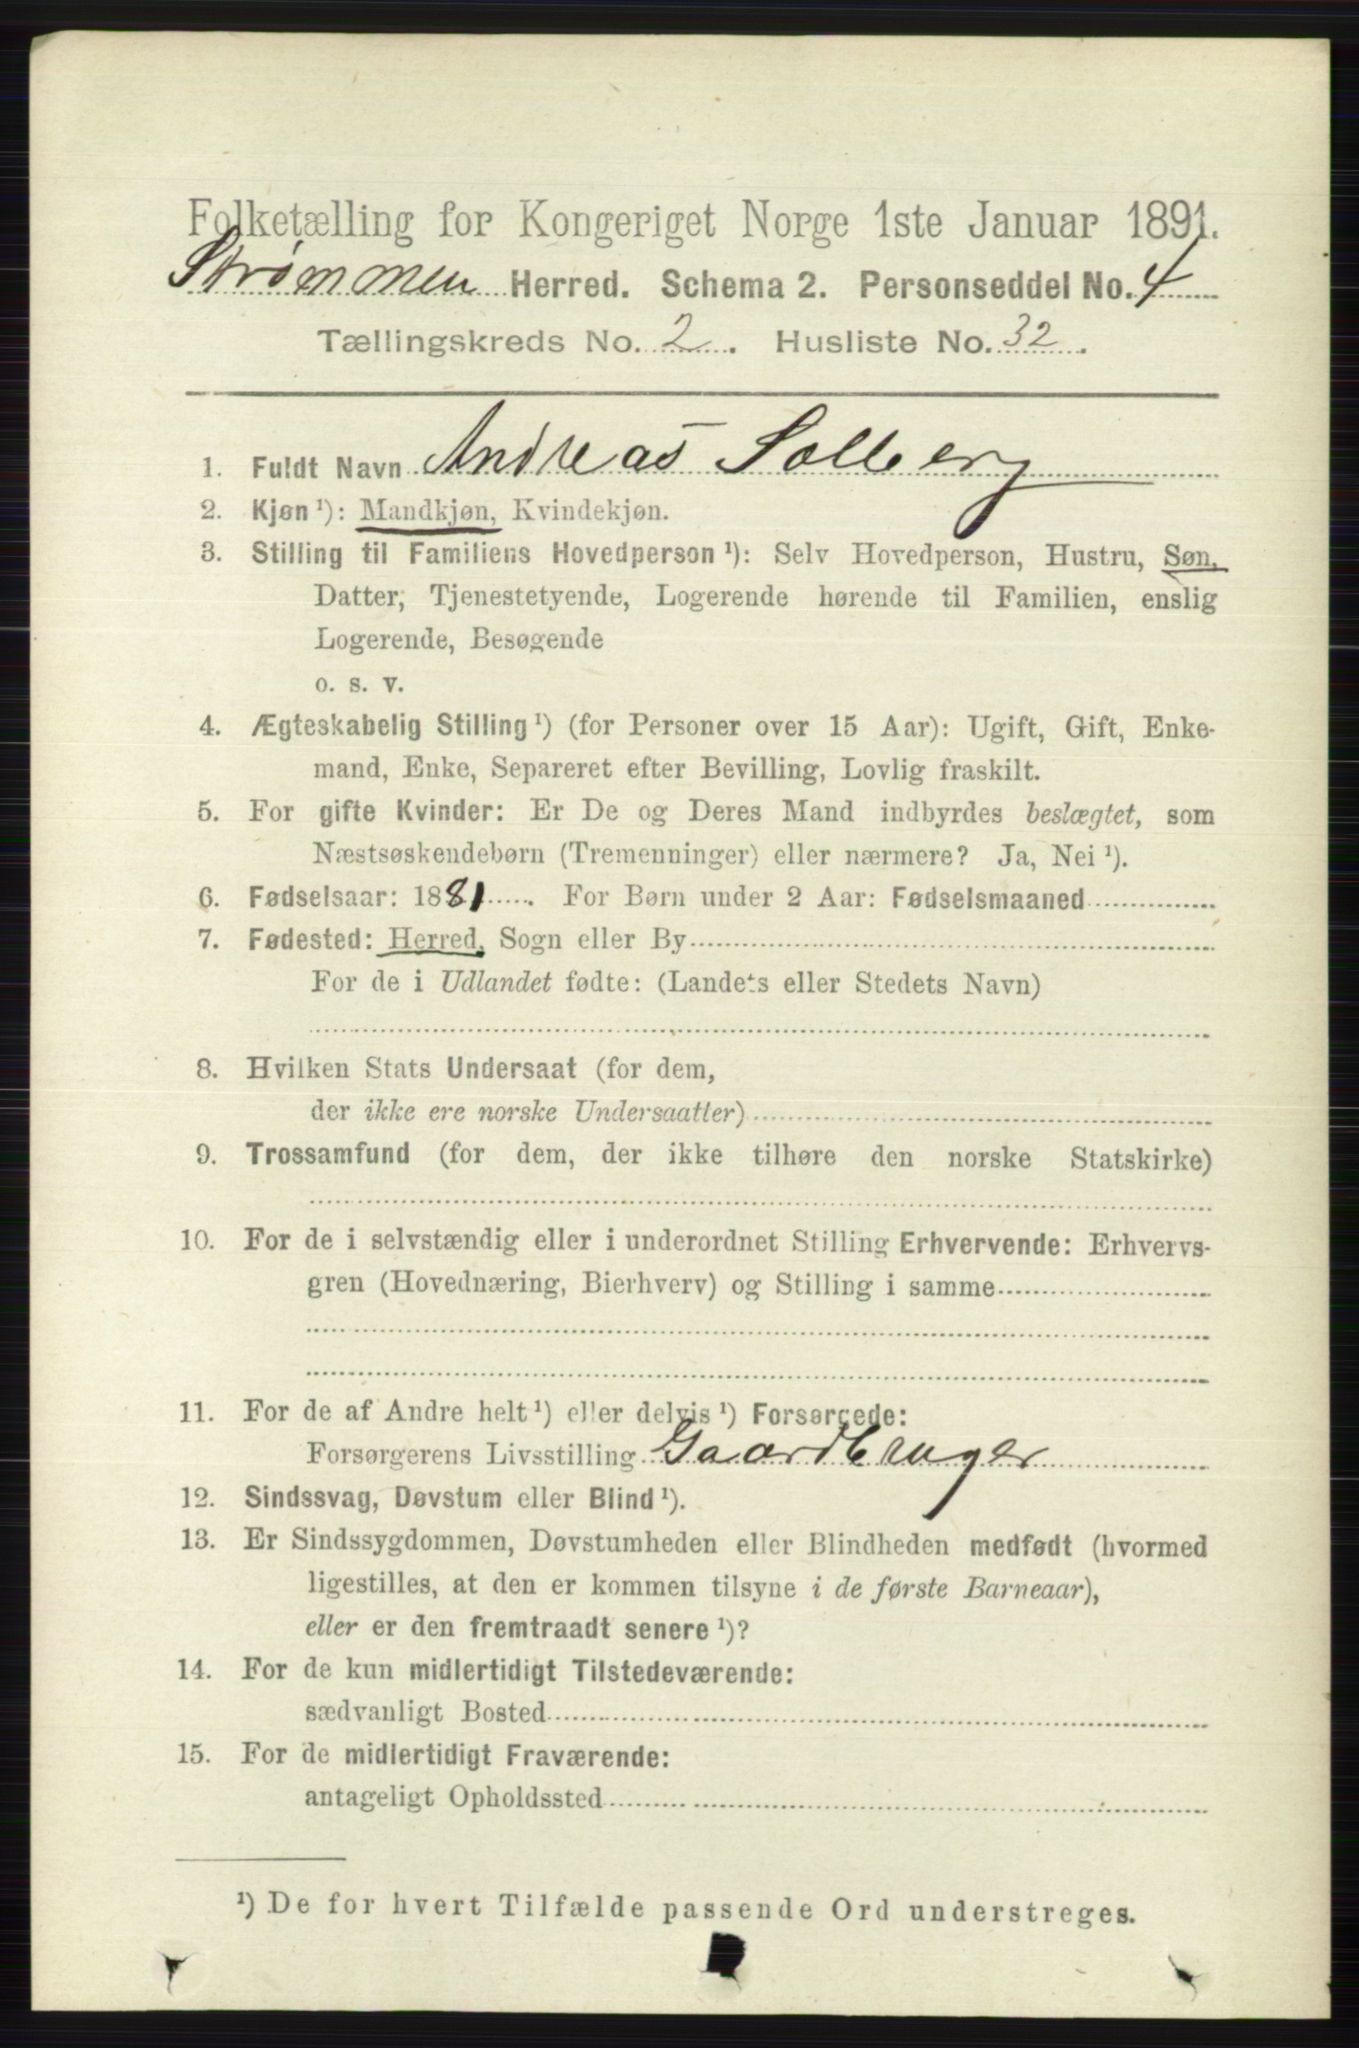 Folketælling for Kongeriget Norge 1ste Januar 1891.
Strømmen Herred. Schema 2. Personseddel No. 4
Tællingskreds No. 2. Husliste No. 32.
1. Fuldt Navn Andreas Solberg
2. Kjøn ¹): Mandkjøn, Kvindekjøn.
3. Stilling til Familiens Hovedperson ¹): Selv Hovedperson, Hustru, Søn,
Datter, Tjenestetyende, Logerende hørende til Familien, enslig
Logerende, Besøgende
o. s. v.
4. Ægteskabelig Stilling ¹) (for Personer over 15 Aar): Ugift, Gift, Enke-
mand, Enke, Separeret efter Bevilling, Lovlig fraskilt.
5. For gifte Kvinder: Er De og Deres Mand indbyrdes beslægtet, som
Næstsøskendebørn (Tremenninger) eller nærmere? Ja, Nei ¹).
6. Fødselsaar: 1881. For Børn under 2 Aar: Fødselsmaaned
7. Fødested: Herred, Sogn eller By
For de i Udlandet fødte: (Landets eller Stedets Navn)
8. Hvilken Stats Undersaat (for dem,
der ikke ere norske Undersaatter)
9. Trossamfund (for dem, der ikke tilhøre den norske Statskirke)
10. For de i selvstændig eller i underordnet Stilling Erhvervende: Erhvervs-
gren (Hovednæring, Bierhverv) og Stilling i samme
11. For de af Andre helt ¹) eller delvis ¹) Forsørgede:
Forsørgerens Livsstilling Gaardbruger
12. Sindssvag, Døvstum eller Blind ¹).
13. Er Sindssygdommen, Døvstumheden eller Blindheden medfødt (hvormed
ligestilles, at den er kommen tilsyne i de første Barneaar),
eller er den fremtraadt senere ¹)?
14. For de kun midlertidigt Tilstedeværende:
sædvanligt Bosted
15. For de midlertidigt Fraværende:
antageligt Opholdssted
¹) De for hvert Tilfælde passende Ord understreges.